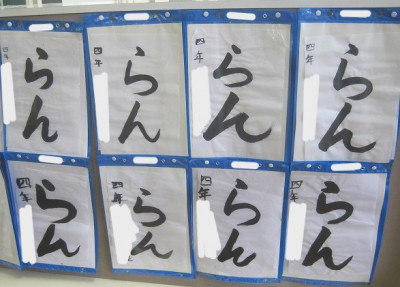 らん
四年
らん
四年
らん
四年
らん
四年
らん
四年
らん
四年
らん
四年
らん
四年